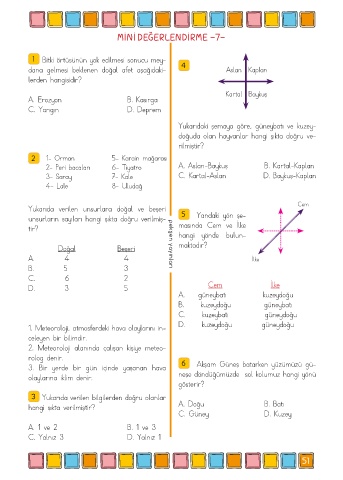 MİNİ DEĞERLENDİRME -7-
1 Bitki örtüsünün yok edilmesi sonucu mey-
dana gelmesi beklenen doğal afet aşağıdaki-
lerden hangisidir?
A. Erozyon B. Kasırga
C. Yangın D. Deprem
2 1- Orman 5- Karain mağarası
2- Peri bacaları 6- Tiyatro
3- Saray 7- Kale
4- Lale 8- Uludağ
Yukarıda verilen unsurlara doğal ve beşeri
unsurların sayıları hangi şıkta doğru verilmiş-
tir?
Doğal Beşeri
A. 4 4
B. 5 3
C. 6 2
D. 3 5
1. Meteoroloji, atmosferdeki hava olaylarını in-
celeyen bir bilimdir.
2. Meteoroloji alanında çalışan kişiye meteo-
rolog denir.
3. Bir yerde bir gün içinde yaşanan hava
olaylarına iklim denir.
3 Yukarıda verilen bilgilerden doğru olanlar
hangi şıkta verilmiştir?
A. 1 ve 2 B. 1 ve 3
C. Yalnız 3 D. Yalnız 1
4
Aslan Kaplan
Kartal Baykuş
Yukarıdaki şemaya göre, güneybatı ve kuzey-
doğuda olan hayvanlar hangi şıkta doğru ve-
rilmiştir?
A. Aslan-Baykuş B. Kartal-Kaplan
C. Kartal-Aslan D. Baykuş-Kaplan
5 Yandaki yön şe-
masında Cem ve İlke
hangi yönde bulun-
maktadır?
Cem
İlke
Cem İlke
A. güneybatı kuzeydoğu
B. kuzeydoğu güneybatı
C. kuzeybatı güneydoğu
D. kuzeydoğu güneydoğu
6 Akşam Güneş batarken yüzümüzü gü-
neşe döndüğümüzde sol kolumuz hangi yönü
gösterir?
A. Doğu B. Batı
C. Güney D. Kuzey
51